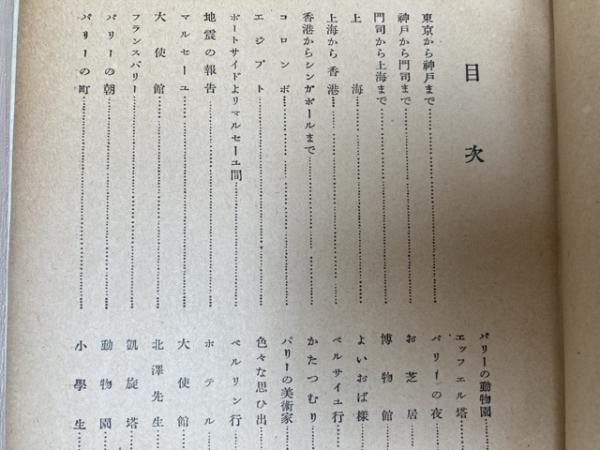 目次
東京から神戸まで
神戸から門司まで
門司から上海まで
上海
上海から香港
香港からシンガポールまで
コロンボ
エジプト
ポートサイドよりマルセーユ間
地震の報告
マルセーユ
大使館
フランスパリー
パリーの朝
パリーの町
パリーの動物園
エッフェル塔
パリーの夜
お芝居
博物館
よいおば様
ベルサイユ行
かたつむり
パリーの美術家
色々な思ひ出
ベルリン行
ホテル
大使館
北澤先生
凱旋塔
動物園
小學生